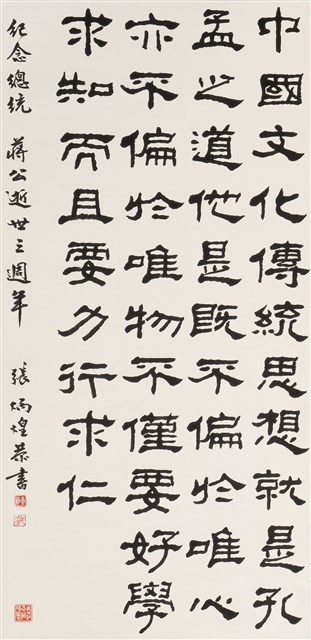 中國文化傳統思想就是孔
孟之道他是既不偏於唯心
亦不偏於唯物不僅要好學
求知而且要力行求仁
紀念總統 蔣公逝世三週年 張炳煌恭書